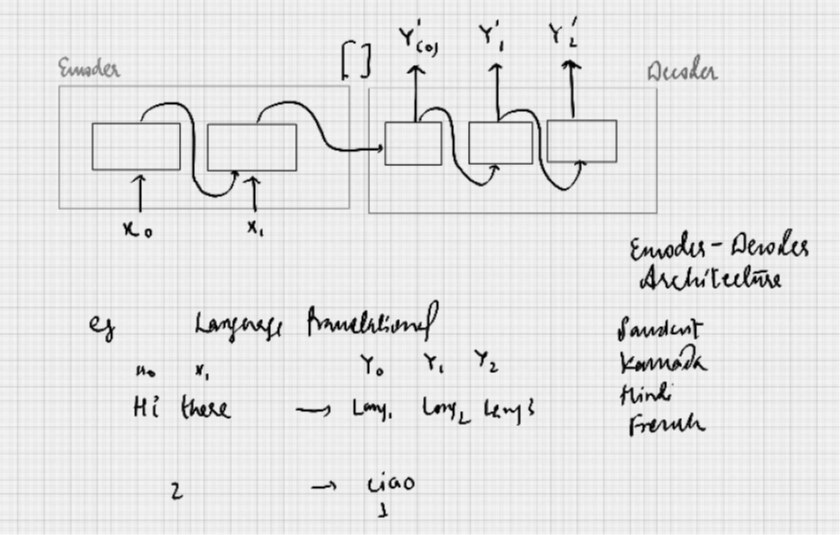 [ ] Y'(0) Y'1 Y'2
Encoder
Decoder
x0 x1
Encoder - Decoder
Architecture
eg Language Translational
x0 x1 Y0 Y1 Y2
Hi there → Lang1 Lang2 Lang3
Sanskrit
Kannada
Hindi
French
2 → ciao
1